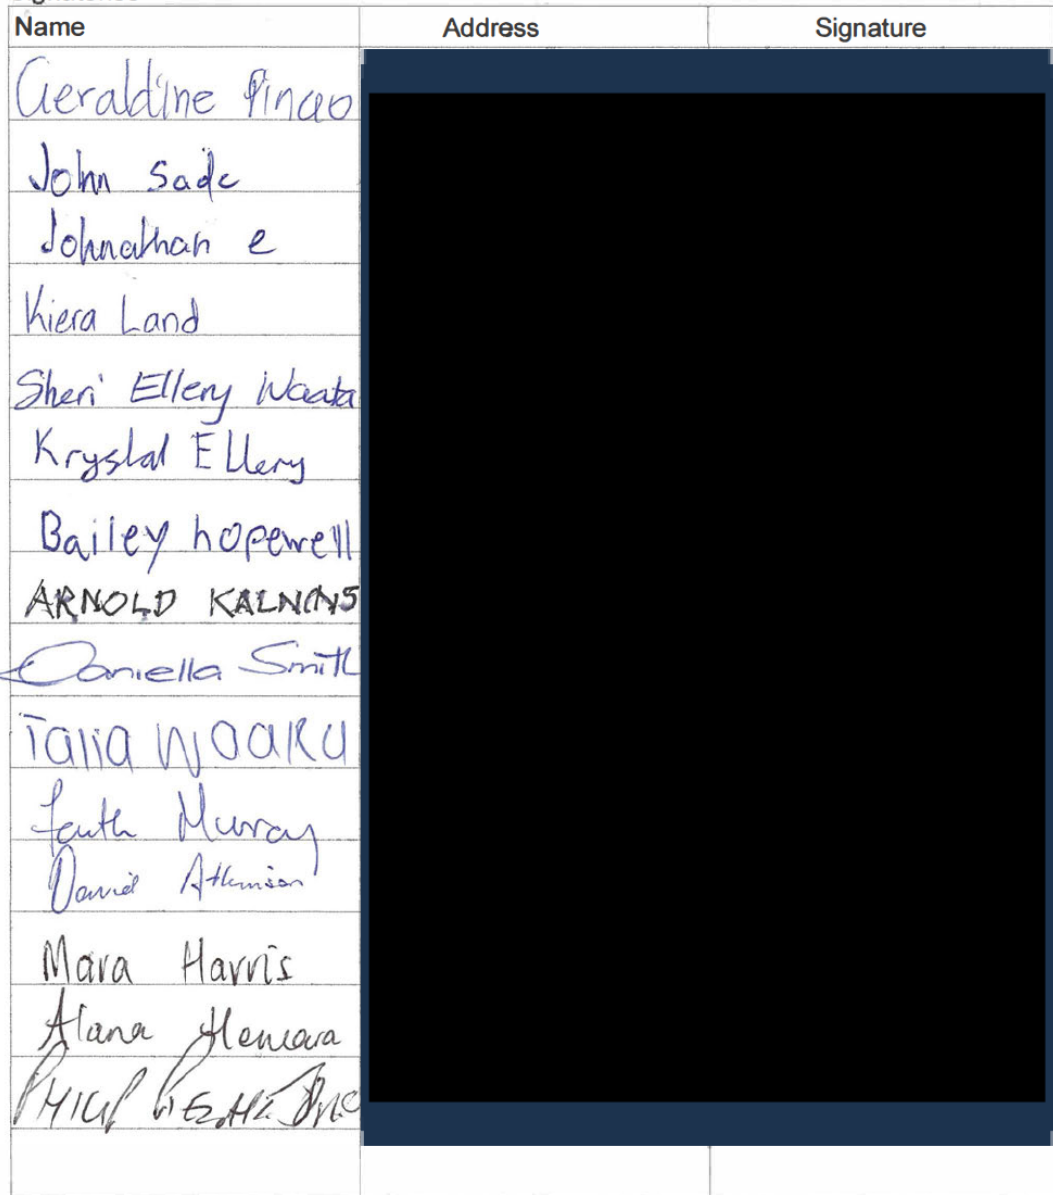 Name Address Signature
Geraldine Pinao
John Sade
Johnathan e
Kiera Land
Sheri Ellery Waata
Krystal Ellery
Bailey hopewell
ARNOLD KALNINS
Daniella Smith
Talia Waaku
Faith Murray
David Atkinson
Mara Harris
Alana Hemara